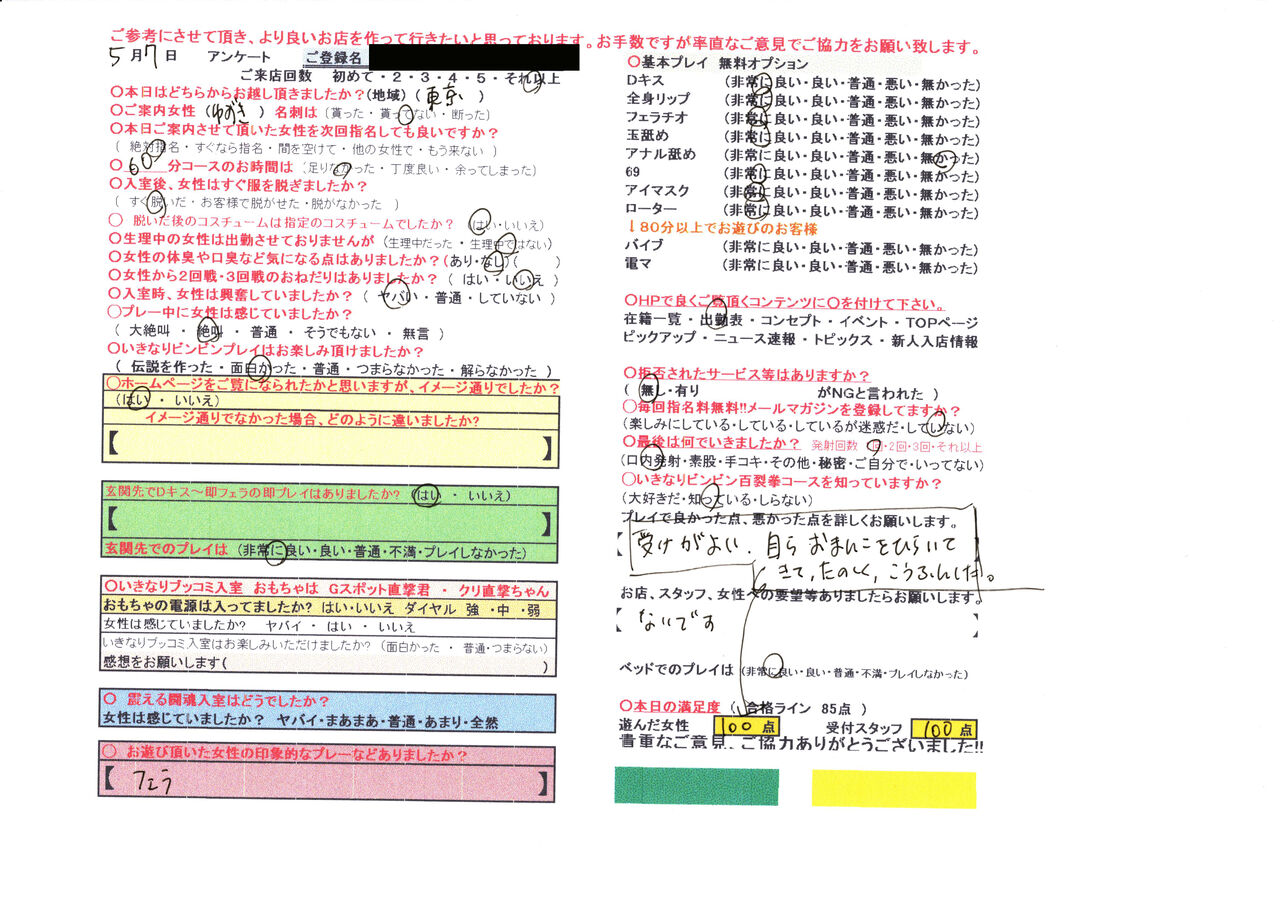 ご参考にさせて頂き、より良いお店を作って行きたいと思っております。お手数ですが率直なご意見でご協力をお願い致します。
5月7日 アンケート ご登録名
ご来店回数 初めて・2・3・4・5・それ以上
〇本日はどちらからお越し頂きましたか？(地域) ( 東京 )
〇ご案内女性 (ゆずき) 名刺は (貰った・貰ってない・断った)
〇本日ご案内させて頂いた女性を次回指名しても良いですか？
( 絶対指名・すぐなら指名・間を空けて・他の女性で・もう来ない )
〇 60分コースのお時間は (足りなかった・丁度良い・余ってしまった)
〇入室後、女性はすぐ服を脱ぎましたか？
( すぐ脱いだ・お客様で脱がせた・脱がなかった )
〇 脱いだ後のコスチュームは指定のコスチュームでしたか？ (はい・いいえ)
〇生理中の女性は出勤させておりませんが (生理中だった・生理中ではない)
〇女性の体臭や口臭など気になる点はありましたか？(あり・なし)( )
〇女性から2回戦・3回戦のおねだりはありましたか？ ( はい・いいえ )
〇入室時、女性は興奮していましたか？ ( ヤバい・普通・していない )
〇プレー中に女性は感じていましたか？
( 大絶叫・絶叫・普通・そうでもない・無言 )
〇いきなりビンビンプレイはお楽しみ頂けましたか？
( 伝説を作った・面白かった・普通・つまらなかった・解らなかった )
〇ホームページをご覧になられたかと思いますが、イメージ通りでしたか？
(はい・いいえ)
イメージ通りでなかった場合、どのように違いましたか？
【 】
玄関先でDキス～即フェラの即プレイはありましたか？ (はい・いいえ)
【 】
玄関先でのプレイは (非常に良い・良い・普通・不満・プレイしなかった)
〇いきなりブッコミ入室 おもちゃは Gスポット直撃君・クリ直撃ちゃん
おもちゃの電源は入ってましたか？ はい・いいえ ダイヤル 強・中・弱
女性は感じていましたか？ ヤバイ・はい・いいえ
いきなりブッコミ入室はお楽しみいただけましたか？ (面白かった・普通・つまらない)
感想をお願いします( )
〇 震える闘魂入室はどうでしたか？
女性は感じていましたか？ ヤバイ・まあまあ・普通・あまり・全然
〇 お遊び頂いた女性の印象的なプレーなどありましたか？
【 フェラ 】
〇基本プレイ 無料オプション
Dキス (非常に良い・良い・普通・悪い・無かった)
全身リップ (非常に良い・良い・普通・悪い・無かった)
フェラチオ (非常に良い・良い・普通・悪い・無かった)
玉舐め (非常に良い・良い・普通・悪い・無かった)
アナル舐め (非常に良い・良い・普通・悪い・無かった)
69 (非常に良い・良い・普通・悪い・無かった)
アイマスク (非常に良い・良い・普通・悪い・無かった)
ローター (非常に良い・良い・普通・悪い・無かった)
↓80分以上でお遊びのお客様
バイブ (非常に良い・良い・普通・悪い・無かった)
電マ (非常に良い・良い・普通・悪い・無かった)
〇HPで良くご覧頂くコンテンツに〇を付けて下さい。
在籍一覧・出勤表・コンセプト・イベント・TOPページ
ピックアップ・ニュース速報・トピックス・新人入店情報
〇拒否されたサービス等はありますか？
( 無し・有り がNGと言われた )
〇毎回指名料無料!!メールマガジンを登録してますか？
(楽しみにしている・している・しているが迷惑だ・していない)
〇最後は何でいきましたか？ 発射回数 1回・2回・3回・それ以上
(口内発射・素股・手コキ・その他・秘密・ご自分で・いってない)
〇いきなりビンビン百裂拳コースを知っていますか？
(大好きだ・知っている・しらない)
プレイで良かった点、悪かった点を詳しくお願いします。
【 受けがよい、自らおまんこをひらいて
きて、たのしく、こうふんした。
お店、スタッフ、女性への要望等ありましたらお願いします。
【 ないです 】
ベッドでのプレイは (非常に良い・良い・普通・不満・プレイしなかった)
〇本日の満足度 ( 合格ライン 85点 )
遊んだ女性 100点 受付スタッフ 100点
貴重なご意見、ご協力ありがとうございました!!